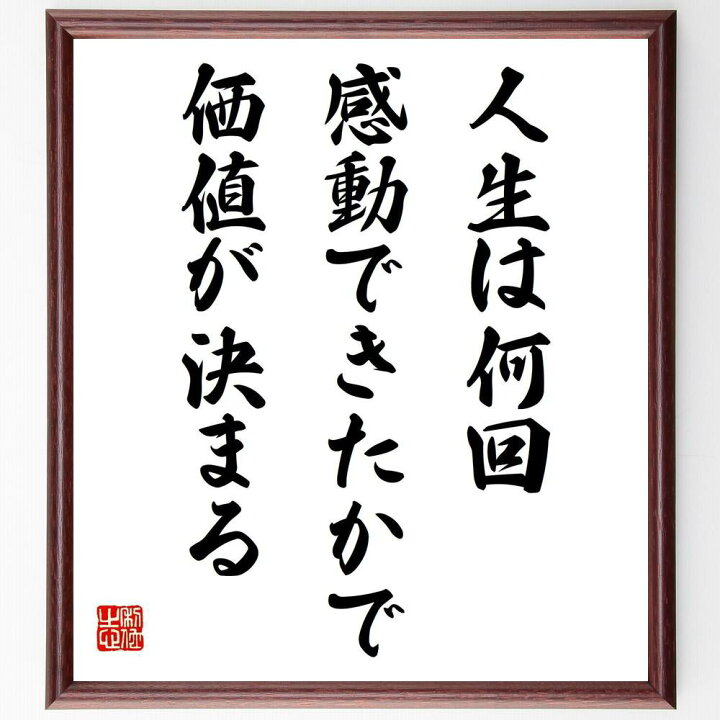 人生は何回
感動できたかで
価値が決まる